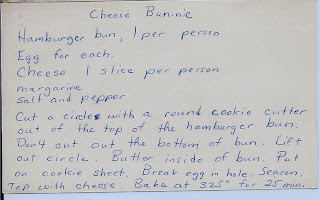 Cheese Bun-nie
Hamburger bun, 1 per person
Egg for each.
Cheese 1 slice per person
margarine
Salt and pepper
Cut a circle with a round cookie cutter
out of the top of the hamburger bun.
Don't cut out the bottom of bun. Lift
out circle. Butter inside of bun. Put
on cookie sheet. Break egg in hole. Season.
Top with cheese. Bake at 325° for 25 min.